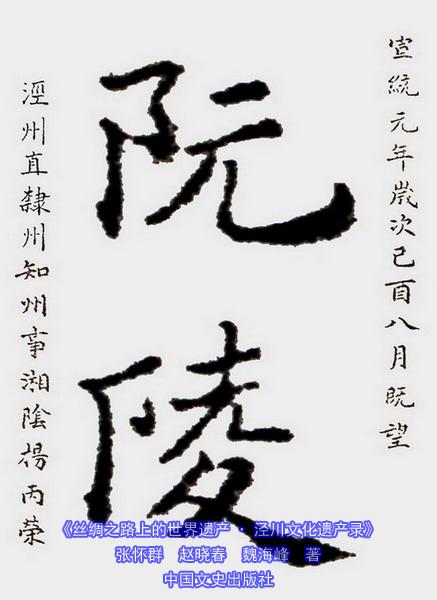 宣統元年歲次己酉八月既望
阮陵
涇州直隸州知州事湘陰楊丙榮
《丝绸之路上的世界遗产 · 泾川文化遗产录》
张怀群 赵晓春 魏海峰 著
中国文史出版社